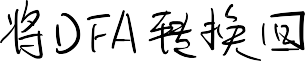 将DFA转换回